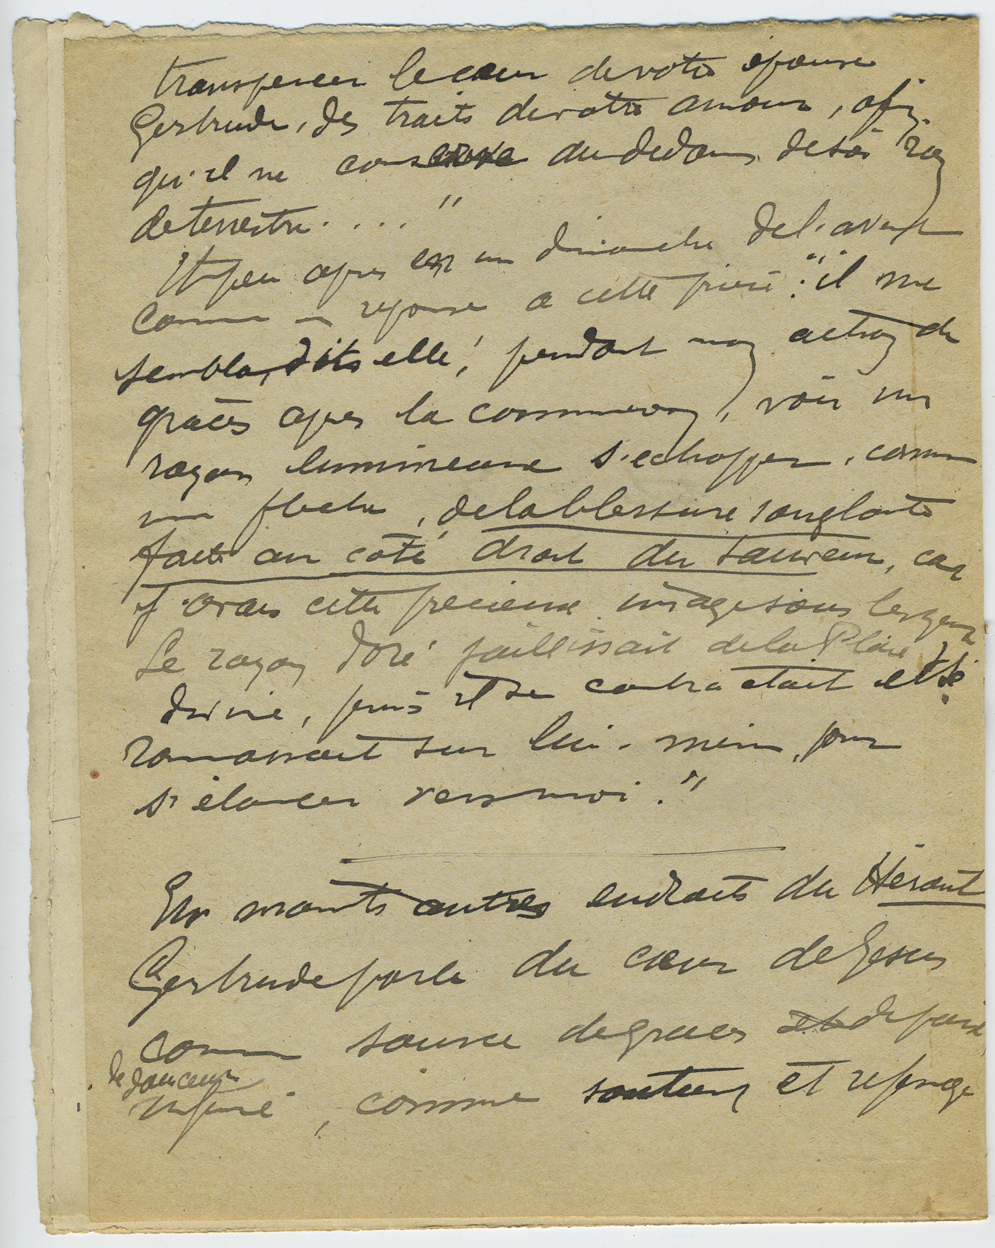 transpercer le cœur de votre épouse
Gertrude, des traits de votre amour, afin
qu'il ne conserve au dedans de soi rien
de terrestre . . . . "
Et peu apres un dimanche de l'avent
comme en reponse a cette priere : "il me
sembla, dit elle, pendant mon action de
graces apres la communion, voir un
rayon lumineux s'echapper, comme
une fleche, de la blessure sanglante
faite au coté droit du Sauveur, car
j'avais cette precieuse image sous les yeux
Le rayon doré jaillissait de la Plaie
divine, puis il se contractait et se
ramassait sur lui-meme, pour
s'élancer vers moi."
En maints autres endroits du Héraut
Gertrude parle du cœur de Jesus
comme source de graces et de paix,
de douceur
infinie, comme soutien et refuge